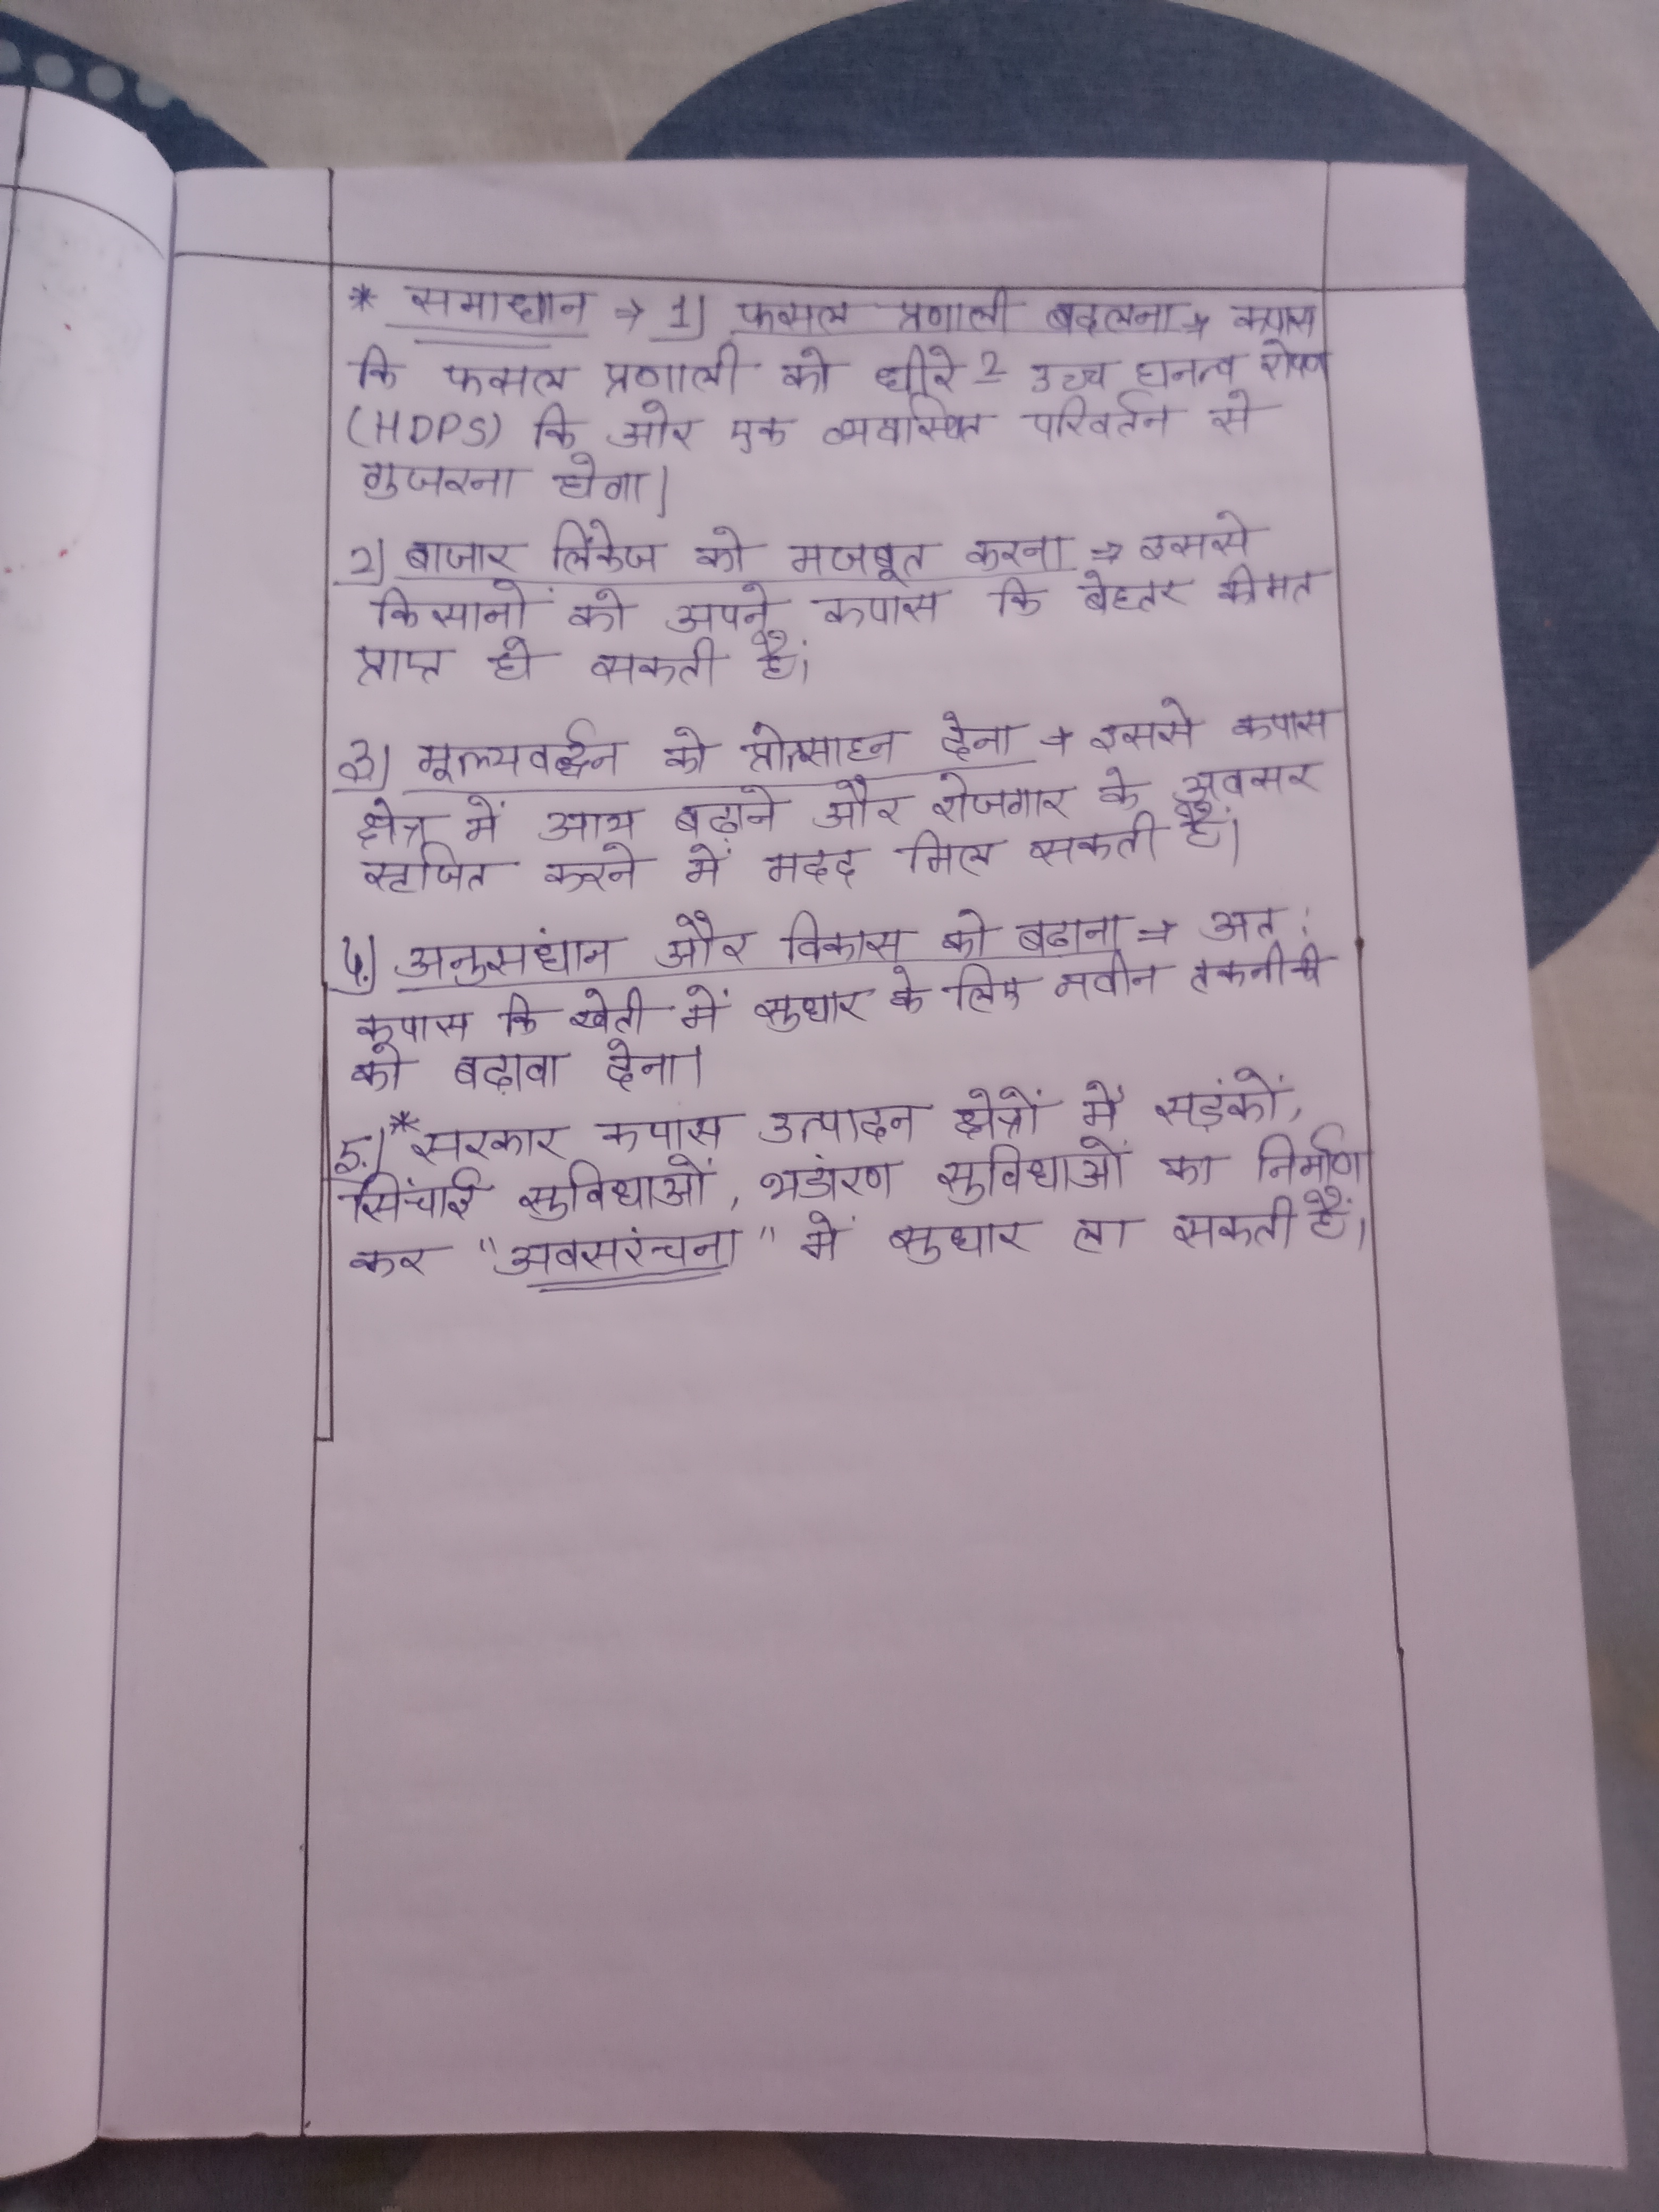 * समाधान → 1) फसल प्रणाली बदलना → कपास
कि फसल प्रणाली को धीरे 2 उच्च घनत्व रोपण
(HDPS) कि ओर एक व्यवस्थित परिवर्तन से
गुजरना होगा।
2) बाजार लिंकेज को मजबूत करना → इससे
किसानों को अपने कपास कि बेहतर कीमत
प्राप्त हो सकती है।
3) मूल्यवर्द्धन को प्रोत्साहन देना → इससे कपास
क्षेत्र में आय बढ़ाने और रोजगार के अवसर
सृजित करने में मदद मिल सकती है।
4.) अनुसंधान और विकास को बढ़ाना → अतः
कपास कि खेती में सुधार के लिए नवीन तकनीकी
को बढ़ावा देना।
5.)* सरकार कपास उत्पादन क्षेत्रों में सड़ंकों,
सिंचाई सुविधाओं, भडांरण सुविधाओं का निर्माण
कर "अवसरंचना" में सुधार ला सकती है।